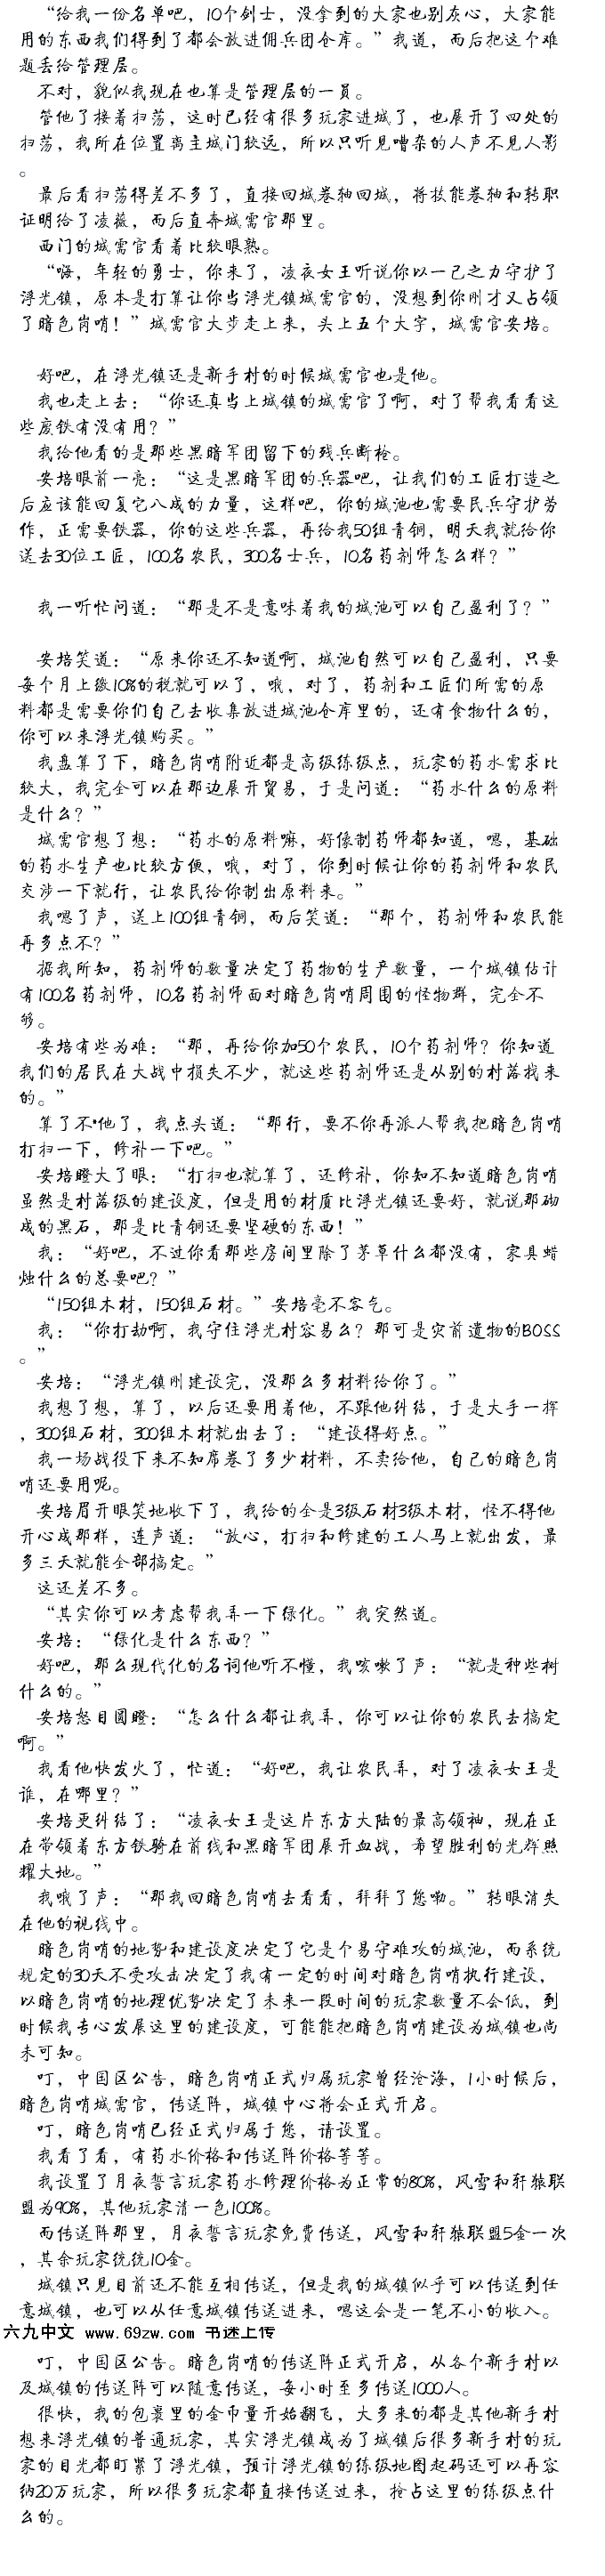 “给我一份名单吧，10个剑士，没拿到的大家也别灰心，大家能
用的东西我们得到了都会放进佣兵团仓库。”我道，而后把这个难
题丢给管理层。
不对，貌似我现在也算是管理层的一员。
管他了接着扫荡，这时已经有很多玩家进城了，也展开了四处的
扫荡，我所在位置离主城门较远，所以只听见嘈杂的人声不见人影
。
最后看扫荡得差不多了，直接回城卷轴回城，将技能卷轴和转职
证明给了凌薇，而后直奔城需官那里。
西门的城需官看着比较眼熟。
“嗨，年轻的勇士，你来了，凌夜女王听说你以一己之力守护了
浮光镇，原本是打算让你当浮光镇城需官的，没想到你刚才又占领
了暗色岗哨！”城需官大步走上来，头上五个大字，城需官安培。
好吧，在浮光镇还是新手村的时候城需官也是他。
我也走上去：“你还真当上城镇的城需官了啊，对了帮我看看这
些废铁有没有用？”
我给他看的是那些黑暗军团留下的残兵断枪。
安培眼前一亮：“这是黑暗军团的兵器吧，让我们的工匠打造之
后应该能回复它八成的力量，这样吧，你的城池也需要民兵守护劳
作，正需要铁器，你的这些兵器，再给我50组青铜，明天我就给你
送去30位工匠，100名农民，300名士兵，10名药剂师怎么样？”
我一听忙问道：“那是不是意味着我的城池可以自己盈利了？”
安培笑道：“原来你还不知道啊，城池自然可以自己盈利，只要
每个月上缴10%的税就可以了，哦，对了，药剂和工匠们所需的原
料都是需要你们自己去收集放进城池仓库里的，还有食物什么的，
你可以来浮光镇购买。”
我盘算了下，暗色岗哨附近都是高级练级点，玩家的药水需求比
较大，我完全可以在那边展开贸易，于是问道：“药水什么的原料
是什么？”
城需官想了想：“药水的原料嘛，好像制药师都知道，嗯，基础
的药水生产也比较方便，哦，对了，你到时候让你的药剂师和农民
交涉一下就行，让农民给你制出原料来。”
我嗯了声，送上100组青铜，而后笑道：“那个，药剂师和农民能
再多点不？”
据我所知，药剂师的数量决定了药物的生产数量，一个城镇估计
有100名药剂师，10名药剂师面对暗色岗哨周围的怪物群，完全不
够。
安培有些为难：“那，再给你加50个农民，10个药剂师？你知道
我们的居民在大战中损失不少，就这些药剂师还是从别的村落找来
的。”
算了不*他了，我点头道：“那行，要不你再派人帮我把暗色岗哨
打扫一下，修补一下吧。”
安培瞪大了眼：“打扫也就算了，还修补，你知不知道暗色岗哨
虽然是村落级的建设度，但是用的材质比浮光镇还要好，就说那砌
成的黑石，那是比青铜还要坚硬的东西！”
我：“好吧，不过你看那些房间里除了茅草什么都没有，家具蜡
烛什么的总要吧？”
“150组木材，150组石材。”安培毫不客气。
我：“你打劫啊，我守住浮光村容易么？那可是灾前遗物的BOSS
。”
安培：“浮光镇刚建设完，没那么多材料给你了。”
我想了想，算了，以后还要用着他，不跟他纠结，于是大手一挥
，300组石材，300组木材就出去了：“建设得好点。”
我一场战役下来不知席卷了多少材料，不卖给他，自己的暗色岗
哨还要用呢。
安培眉开眼笑地收下了，我给的全是3级石材3级木材，怪不得他
开心成那样，连声道：“放心，打扫和修建的工人马上就出发，最
多三天就能全部搞定。”
这还差不多。
“其实你可以考虑帮我弄一下绿化。”我突然道。
安培：“绿化是什么东西？”
好吧，那么现代化的名词他听不懂，我咳嗽了声：“就是种些树
什么的。”
安培怒目圆瞪：“怎么什么都让我弄，你可以让你的农民去搞定
啊。”
我看他快发火了，忙道：“好吧，我让农民弄，对了凌夜女王是
谁，在哪里？”
安培更纠结了：“凌夜女王是这片东方大陆的最高领袖，现在正
在带领着东方铁骑在前线和黑暗军团展开血战，希望胜利的光辉照
耀大地。”
我哦了声：“那我回暗色岗哨去看看，拜拜了您嘞。”转眼消失
在他的视线中。
暗色岗哨的地势和建设度决定了它是个易守难攻的城池，而系统
规定的30天不受攻击决定了我有一定的时间对暗色岗哨执行建设，
以暗色岗哨的地理优势决定了未来一段时间的玩家数量不会低，到
时候我专心发展这里的建设度，可能能把暗色岗哨建设为城镇也尚
未可知。
叮，中国区公告，暗色岗哨正式归属玩家曾经沧海，1小时候后，
暗色岗哨城需官，传送阵，城镇中心将会正式开启。
叮，暗色岗哨已经正式归属于您，请设置。
我看了看，有药水价格和传送阵价格等等。
我设置了月夜誓言玩家药水修理价格为正常的80%，风雪和轩辕联
盟为90%，其他玩家清一色100%。
而传送阵那里，月夜誓言玩家免费传送，风雪和轩辕联盟5金一次
，其余玩家统统10金。
城镇只见目前还不能互相传送，但是我的城镇似乎可以传送到任
意城镇，也可以从任意城镇传送进来，嗯这会是一笔不小的收入。
六九中文 www.69zw.com 书迷上传
叮，中国区公告。暗色岗哨的传送阵正式开启，从各个新手村以
及城镇的传送阵可以随意传送，每小时至多传送1000人。
很快，我的包裹里的金币量开始翻飞，大多来的都是其他新手村
想来浮光镇的普通玩家，其实浮光镇成为了城镇后很多新手村的玩
家的目光都盯紧了浮光镇，预计浮光镇的练级地图起码还可以再容
纳20万玩家，所以很多玩家都直接传送过来，抢占这里的练级点什
么的。